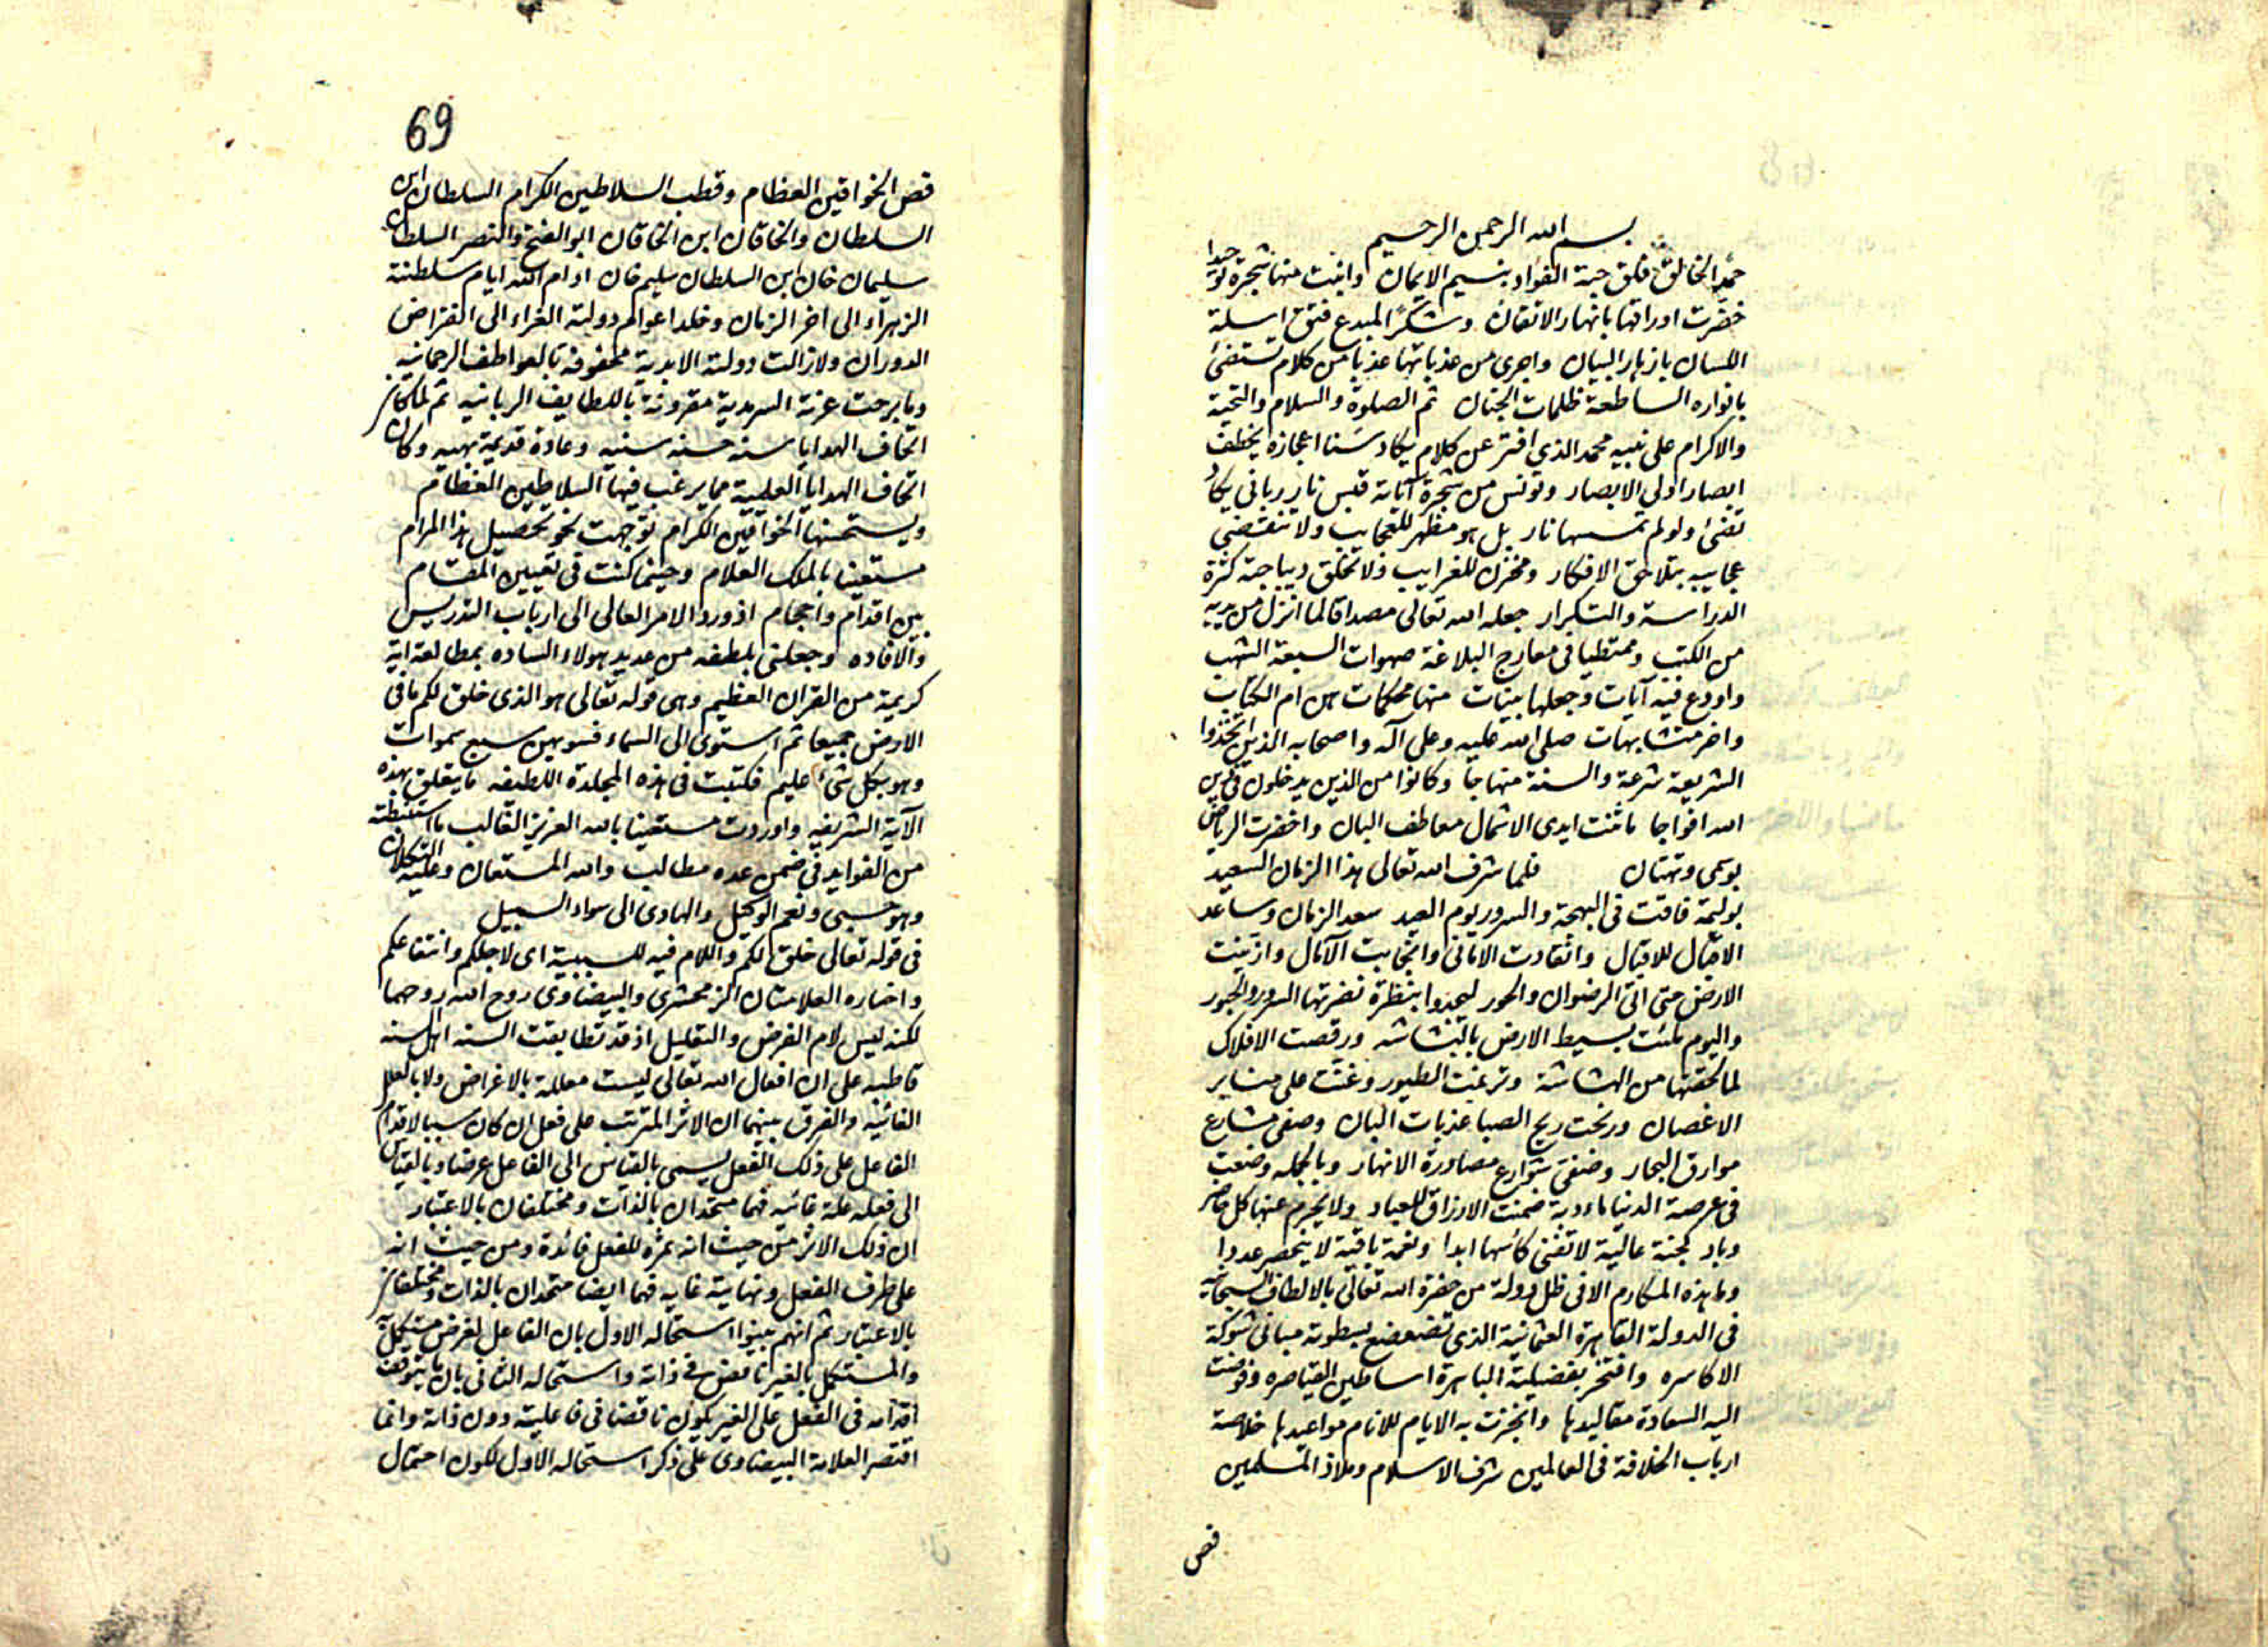 بسم الله الرحمن الرحيم
حمدا لخالق فلق حبة الفؤاد بنسيم الايمان وانبت منها شجرة توحيدا
خضرت اوراقها بانهار الاتقان وشكرا لمبدع فتق اسلة
اللسان بازهار البيان واجرى من عذباتها عذبا من كلام تستضئ
بانواره الساطعة ظلمات الجنان ثم الصلوة والسلام والتحية
والاكرام على نبيه محمد الذي افتر عن كلام يكاد سنا اعجازه يخطف
ابصار اولى الابصار وتونس من شجرة آياته قبس نار رباني يكاد
تضئ ولو لم تمسسها نار بل هو مظهر للعجايب ولا تنقضي
عجايبه بتلاحق الافكار ومخزن للغرايب فلا تخلق ديباجته كثرة
الدراسة والتكرار جعله الله تعالى مصداقا لما انزل من يديه
من الكتب وممتطيا في معارج البلاغة صهوات السبعة الشهب
واودع فيه آيات وجعلها بينات منها محكمات هن ام الكتاب
واخر متشابهات صلى الله عليه وعلى آله واصحابه الذين اتخذوا
الشريعة شرعة والسنة منهاجا وكانوا من الذين يدخلون في دين
الله افواجا ما ثنت ايدى الاشمال معاطف البان واخضرت الرياض
بوسمى وتهتان فلما شرف الله تعالى هذا الزمان السعيد
بوليمة فاقت في البهجة والسرور يوم العيد سعد الزمان وساعد
الاقبال للاقبال وانقادت الاماني وانجابت الآمال وازينت
الارض حتى اتى الرضوان والحور ليجدوا بنظرة نضرتها السرور والحبور
واليوم ملئت بسيط الارض بالبشاشه ورقصت الافلاك
لما لحقتها من الهشاشة وترنمت الطيور وغنت على منابر
الاغصان ورنحت ريح الصبا عذبات البان وصفى مشارع
موارق البحار وضفى شوارع مصادرة الانهار وبالجمله وضعت
في عرصة الدنيا مادبة ضمنت الارزاق للعباد ولا يحرم عنها كل حاضر
وباد كجنة عالية لا تفنى كاسها ابدا ونعمة باقية لا ينحصر عددا
وما هذه المكارم الا في ظل دولة من حضرة الله تعالى بالالطاف السبحانيه
في الدولة القاهرة العثمانية الذى تضعضع بسطوته مبانى شوكة
الاكاسره وافتخر بفضيلته الباهرة اساطين القياصره وفوضت
اليه السعادة مقاليدها وانجزت به الايام للانام مواعيدها خلاصة
ارباب الخلافة في العالمين شرف الاسلام وملاذ المسلمين
فص
69
فص الخواقين العظام وقطب السلاطين الكرام السلطان ابن
السلطان والخاقان ابن الخاقان ابو الفتح والنصر السلطان
سليمان خان ابن السلطان سليم خان ادام الله ايام سلطنته
الزهراء الى اخر الزمان وخلد اعوام دولته الغراء الى انقراض
الدوران ولا زالت دولته الابدية محفوفة بالعواطف الرحمانيه
وما برحت عزته السرمدية مقرونة باللطايف الربانيه ثم لما كان
اتحاف الهدايا سنة حسنة سنيه وعادة قديمة بهيه وكان
اتحاف الهدايا العلمية مما يرغب فيها السلاطين العظام
ويستحسنها الخواقين الكرام توجهت نحو تحصيل هذا المرام
مستعينا بالملك العلام وحينما كنت في تعيين المقام
بين اقدام واحجام اذ ورد الامر العالى الى ارباب التدريس
والافاده وجعلنى بلطفه من عديد هولاء الساده بمطالعة اية
كريمة من القران العظيم وهى قوله تعالى هو الذى خلق لكم ما في
الارض جميعا ثم استوى الى السماء فسويهن سبع سموات
وهو بكل شئ عليم فكتبت في هذه المجلدة اللطيفه ما يتعلق بهذه
الآية الشريفه واوردت مستعينا بالله العزيز الغالب ما استنبطته
من الفوايد في ضمن عده مطالب والله المستعان وعليه التكلان
وهو حسبى ونعم الوكيل والهادى الى سواء السبيل
في قوله تعالى خلق لكم واللام فيه للسببية اى لاجلكم وانتفاعكم
واختاره العلامتان الزمخشرى والبيضاوى روح الله روحهما
لكنه ليس لام الغرض والتعليل اذ قد تطابقت السنه اهل السنه
قاطبه على ان افعال الله تعالى ليست معللة بالاغراض ولا بالعلل
الغائيه والفرق بينهما ان الاثر المترتب على فعل ان كان سببا لاقدام
الفاعل على ذلك الفعل يسمى بالقياس الى الفاعل غرضا وبالقياس
الى فعله علة غائيه فهما متحدان بالذات ومختلفان بالاعتبار
ان ذلك الاثر من حيث انه ثمره للفعل فائدة ومن حيث انه
على طرف الفعل ونهايته غايه فهما ايضا متحدان بالذات ومختلفان
بالاعتبار ثم انهم بينوا استحاله الاول بان الفاعل لغرض مستكمل به
والمستكمل بالغير ناقص في ذاته واستحاله الثانى بان ما يتوقف
اقدامه في الفعل على الغير يكون ناقصا في فاعليته دون ذاته وانما
اقتصر العلامة البيضاوى على ذكر استحاله الاول لكون احتمال